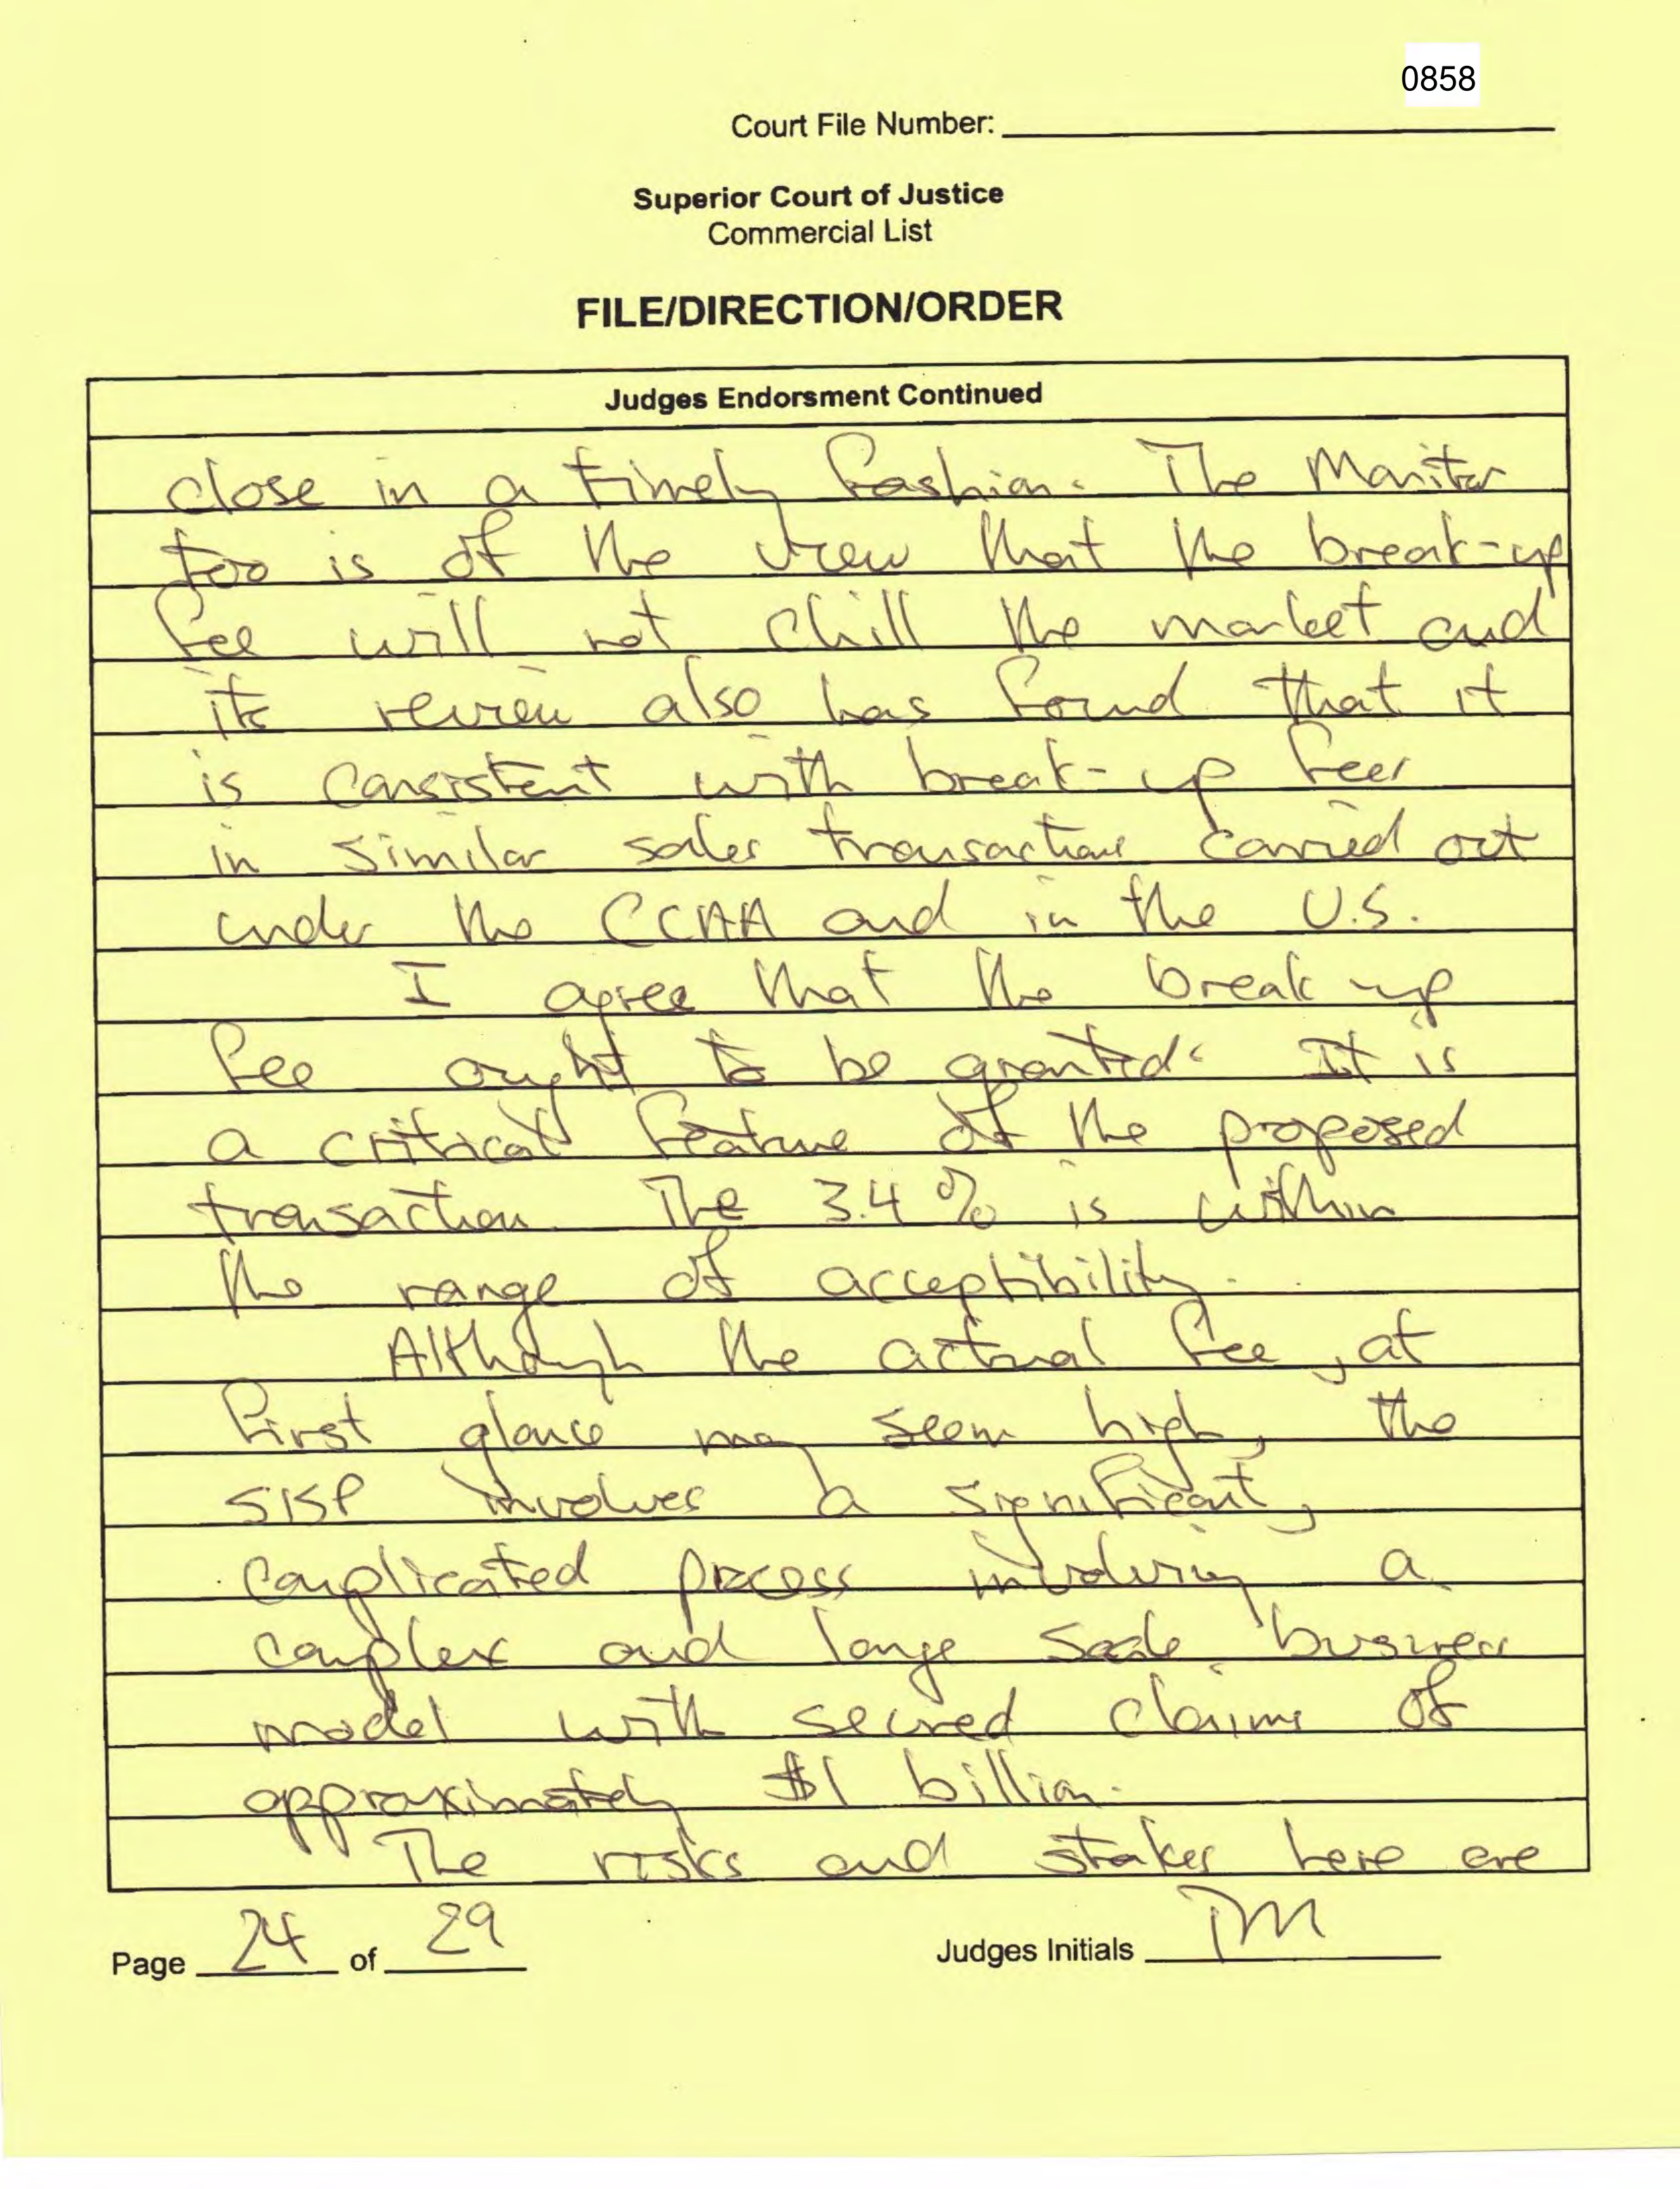 0858
Court File Number:
Superior Court of Justice
Commercial List
FILE/DIRECTION/ORDER
Judges Endorsment Continued
close in a timely fashion. The Monitor
too is of the view that the break-up
fee will not chill the market and
its review also has found that it
is consistent with break-up fees
in similar sales transactions carried out
under the CCAA and in the U.S.
I agree that the break up
fee ought to be granted. It is
a critical feature of the proposed
transaction. The 3.4% is within
the range of acceptibility.
Although the actual fee, at
first glance may seem high, the
SISP involves a significant,
complicated process involving a
complex and large scale business
model with secured claims of
approximately $1 billion.
The risks and stakes here are
Page 24 of 29
Judges Initials